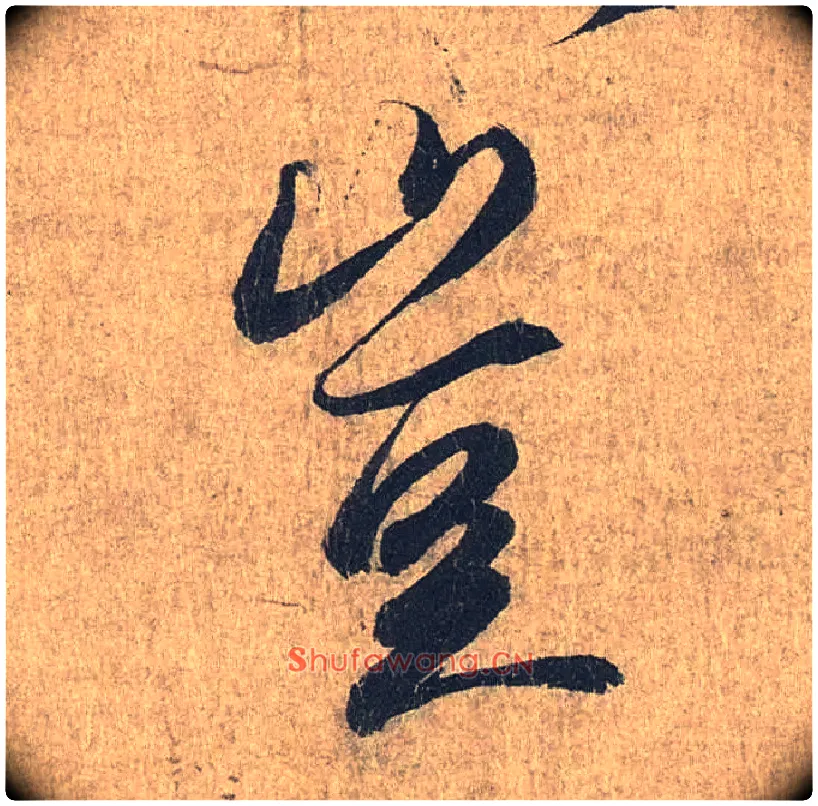 豈
Shufawang.CN